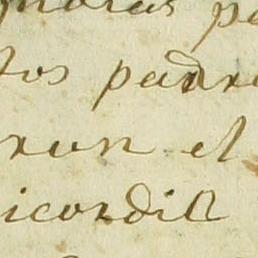 tos padr
ron el
icordia